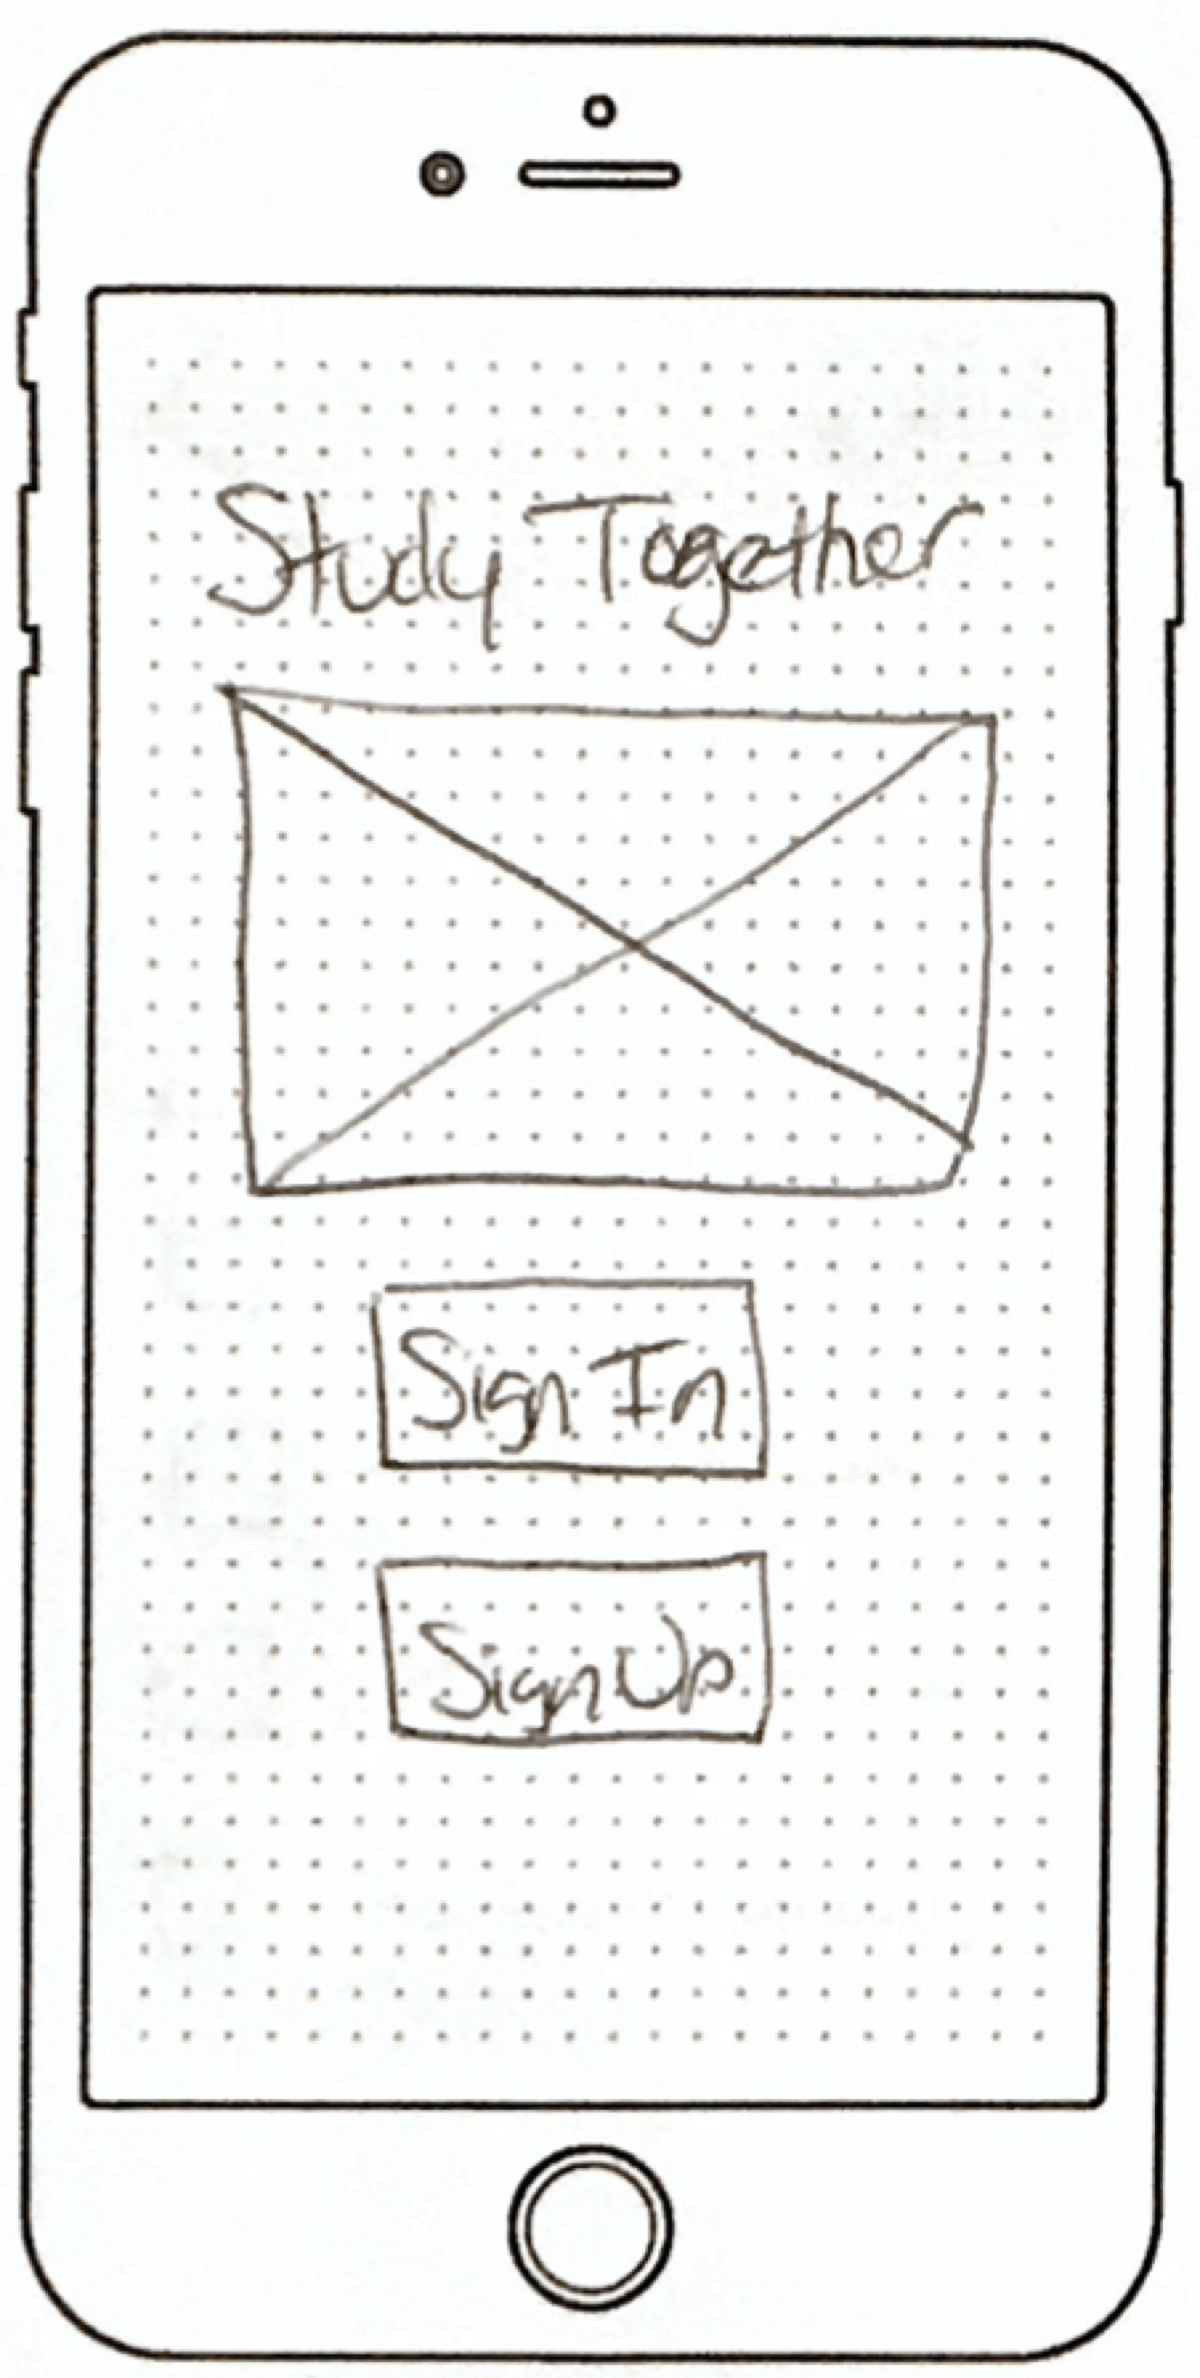 Study Together
Sign In
Sign Up